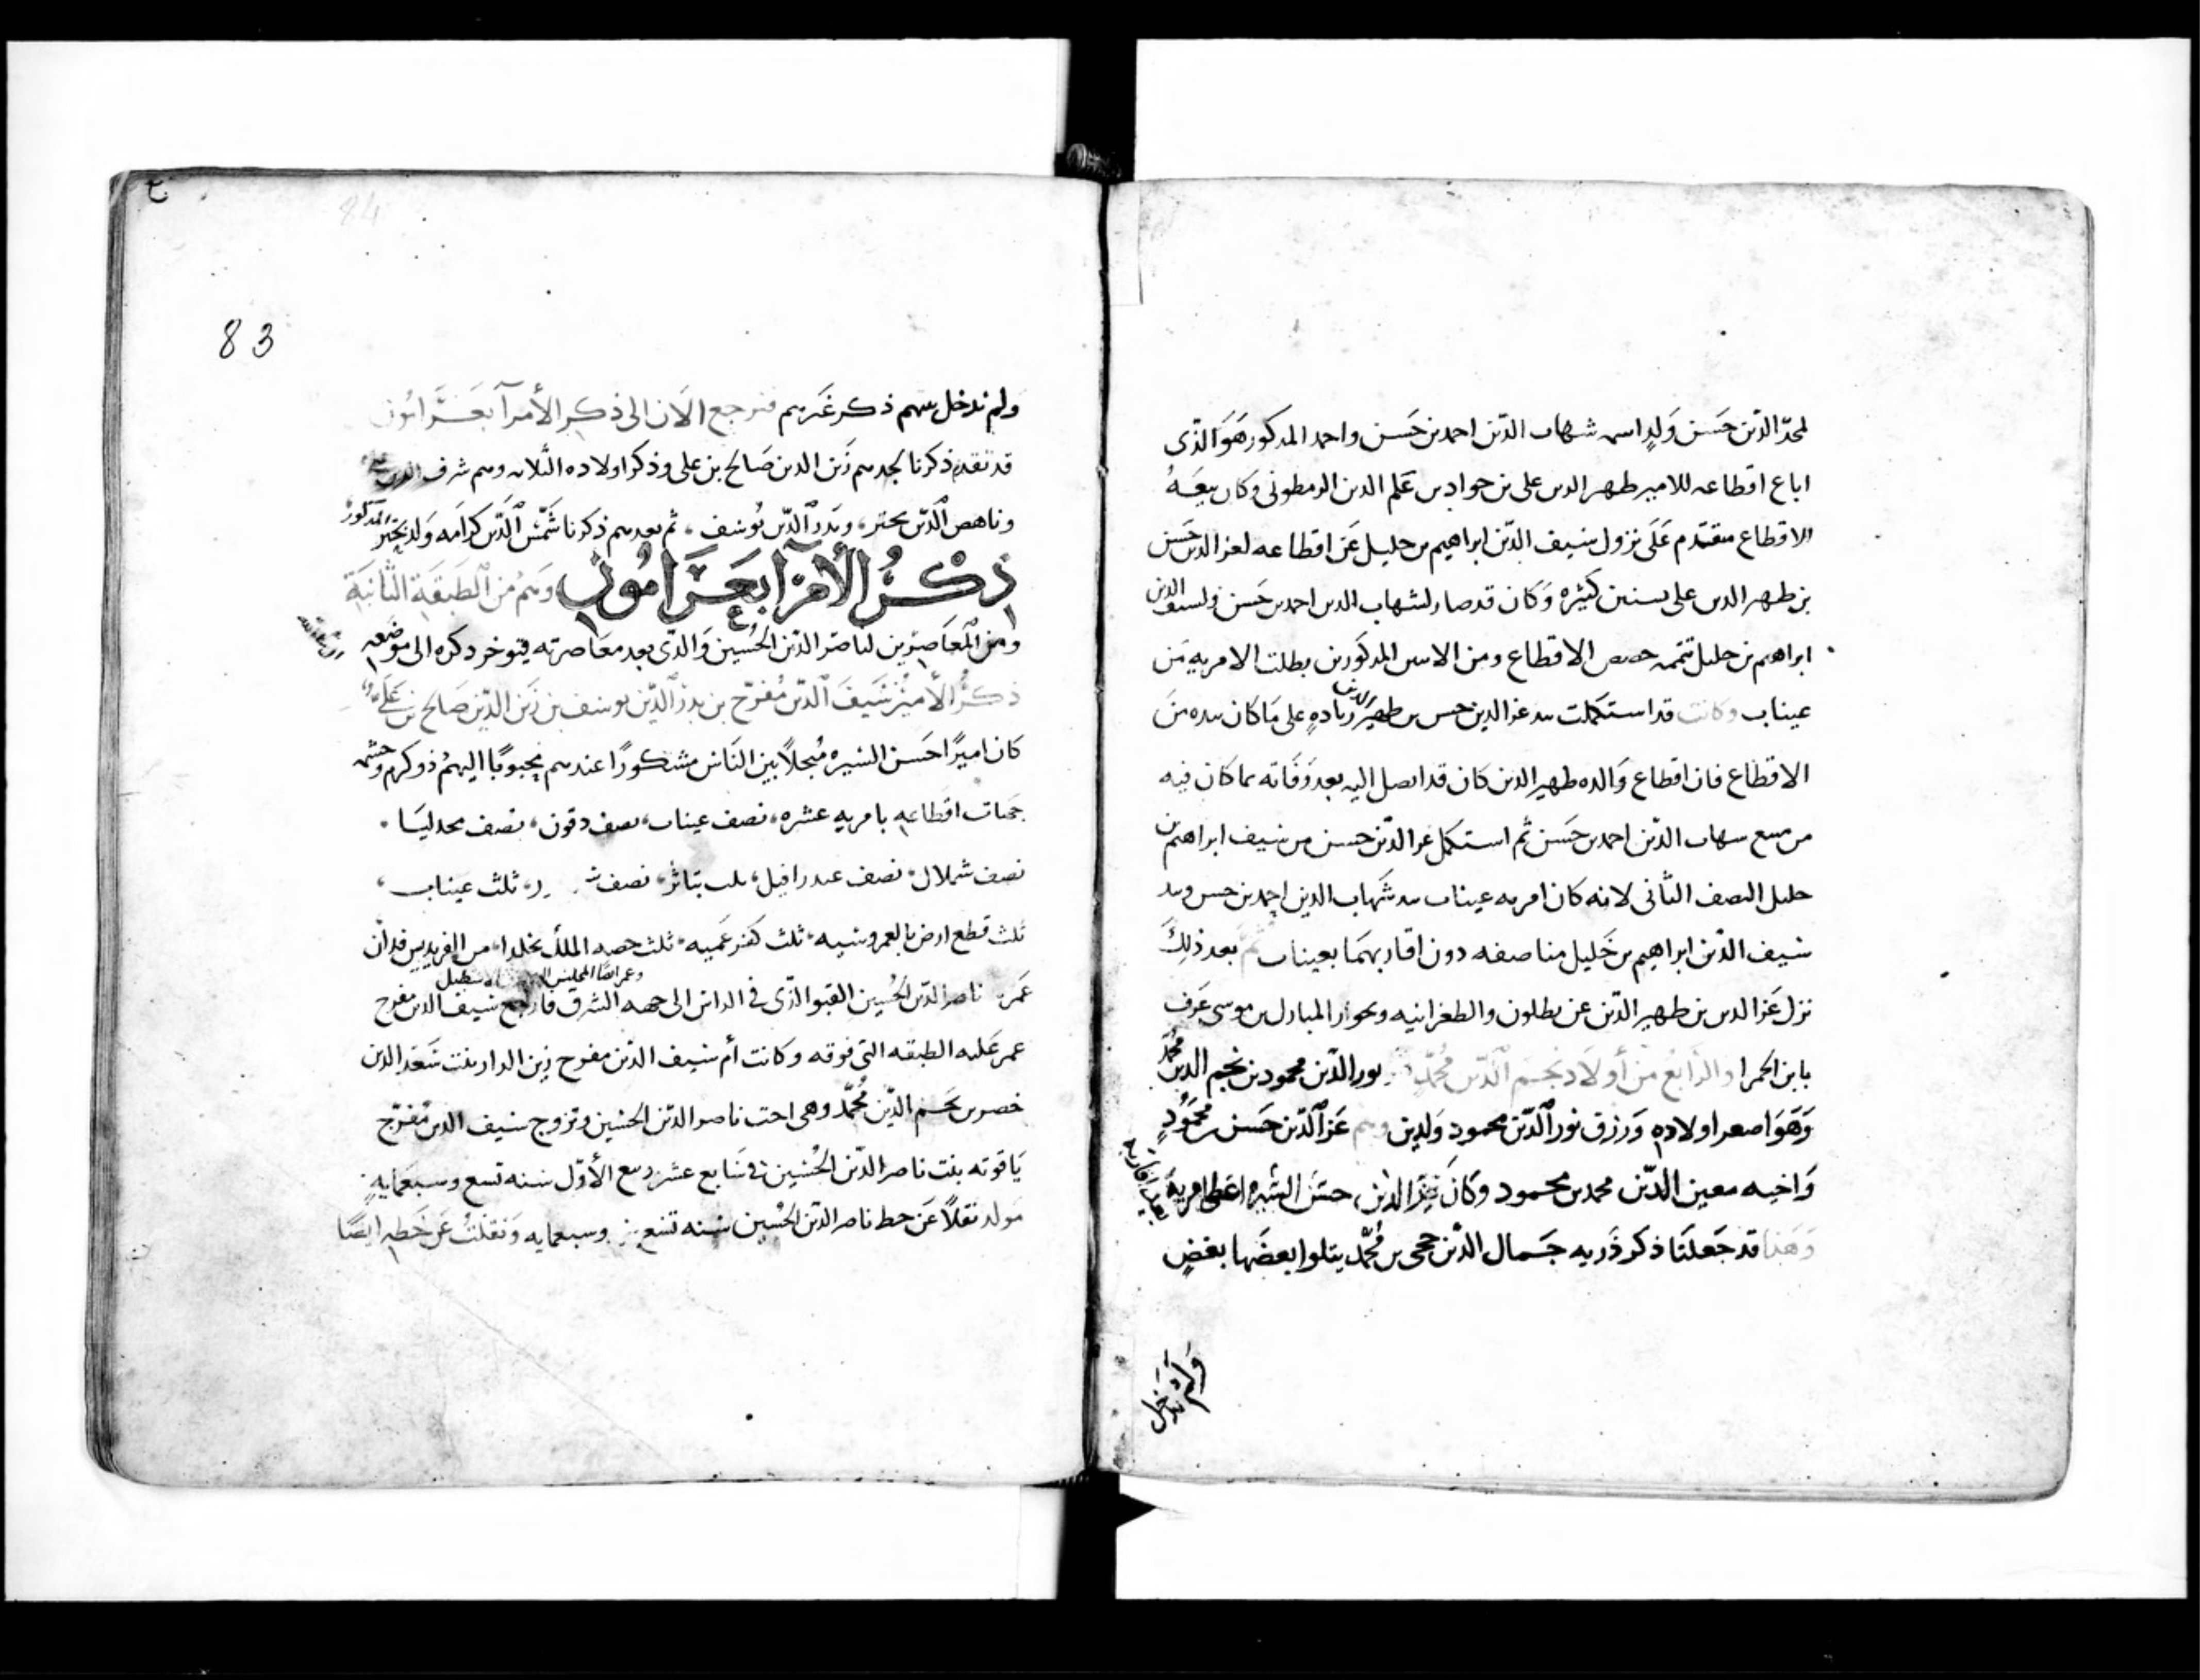 لمجد الدين حسن ولد اسمه شهاب الدين احمد بن حسن واحمد المذكور هو الذى
اباع اقطاعه للامير ظهير الدين على بن جواد بن علم الدين الرمطونى وكان بيعه
الاقطاع متقدم على نزول سيف الدين ابراهيم بن خليل عن اقطاعه لعز الدين حسن
بن ظهير الدين على بسنين كثيره وكان قد صار لشهاب الدين احمد بن حسن ولسيف الدين
ابراهيم بن خليل تتمه حصص الاقطاع ومن الاسن المذكورين بطلت الامريه من
عيناب وكانت قد استكملت بيد عز الدين حسن بن ظهير الدين زياده على ما كان بيده من
الاقطاع فان اقطاع والده ظهير الدين كان قد اتصل اليه بعد وفاته بما كان فيه
من مبيع شهاب الدين احمد بن حسن ثم استكمل عز الدين حسن من سيف ابراهيم بن
خليل النصف الثانى لانه كان امريه عيناب بيد شهاب الدين احمد بن حسن وبيد
سيف الدين ابراهيم بن خليل مناصفه دون اقاربهما بعيناب ثم بعد ذلك
نزل عز الدين بن ظهير الدين عن بطلون والطغرانيه وبحوار المبادل بن موسى عرف
بابن الحمرا والرابع من أولاد نجم الدين محمد نور الدين محمود بن نجم الدين محمد
وهو اصغر اولاده ورزق نور الدين محمود ولدين وهم عز الدين حسن بن محمود
واخيه معين الدين محمد بن محمود وكان الدين حسن السيره اعطى امريه
وهنا قد جعلنا ذكر ذريه جمال الدين حجى بن محمد يتلوا بعضها بعض
ولم ندخل
83
84
ولم ندخل بينهم ذكر غيرهم فنرجع الان الى ذكر الأمرآ بعرامون
قد تقدم ذكرنا لجدهم زين الدين صالح بن على وذكر اولاده الثلاثه وهم شرف الدين على
وناهض الدين بحتر، وبدر الدين يوسف، ثم بعدهم ذكرنا شمس الدين كرامه ولد بحتر المذكور
ذكر الأمرآ بعرامون وهم من الطبقة الثانية
ومن المعاصرين لناصر الدين الحسين والذى بعد معاصرته فيتوخر ذكره الى موضعه
ذكر الأمير سيف الدين مفرح بن بدر الدين يوسف بن زين الدين صالح بن على
كان اميرًا حسن السيره مبجلًا بين الناس مشكورًا عندهم محبوبًا اليهم ذو كرم وحشمه
جهات اقطاعه بامريه عشره، نصف عيناب، نصف دقون، نصف مجدليا
نصف شملال، نصف عيدرافيل، ثلث بتاثر، نصف ثلث عيناب،
ثلث قطع ارض بالعمروسيه، ثلث كفرعميه، ثلث حصه الملك بخلدا، من الفريديس فدان
وعمر ايضًا المجلس
عمر ناصر الدين الحسين القبو الذى فى الداير الى جهه الشرق سيف الدين مفرح
عمر عليه الطبقه التى فوقه وكانت أم سيف الدين مفرح زين الدار بنت سعد الدين
خضر بن نجم الدين محمد وهى اخت ناصر الدين الحسين وتزوج سيف الدين مفرح
ياقوته بنت ناصر الدين الحسين فى سابع عشر ربيع الأول سنه تسع وسبعمايه
مولد نقلًا عن خط ناصر الدين الحسين سنه تسع وسبعمايه ونقلت عن خطه ايضًا